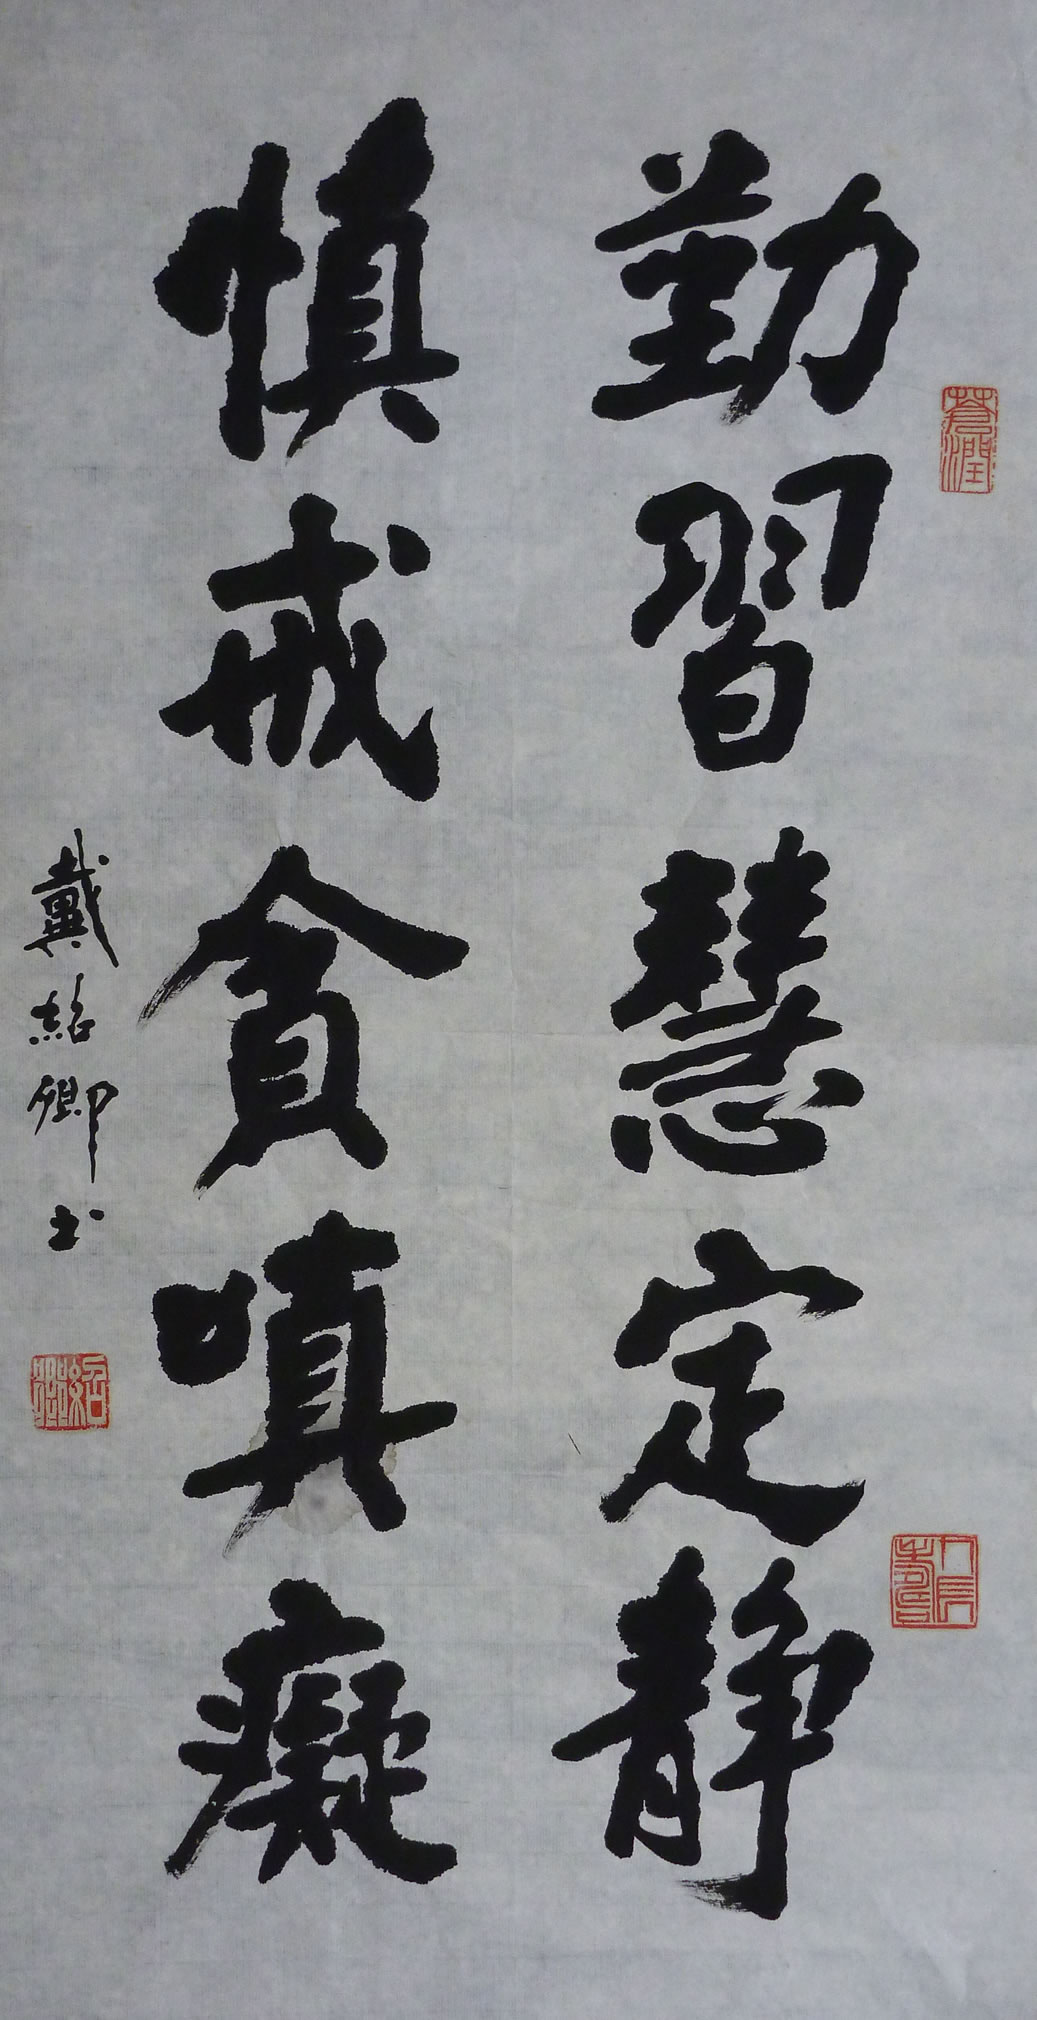 勤習慧定静
慎戒貪嗔癡
戴紹卿书